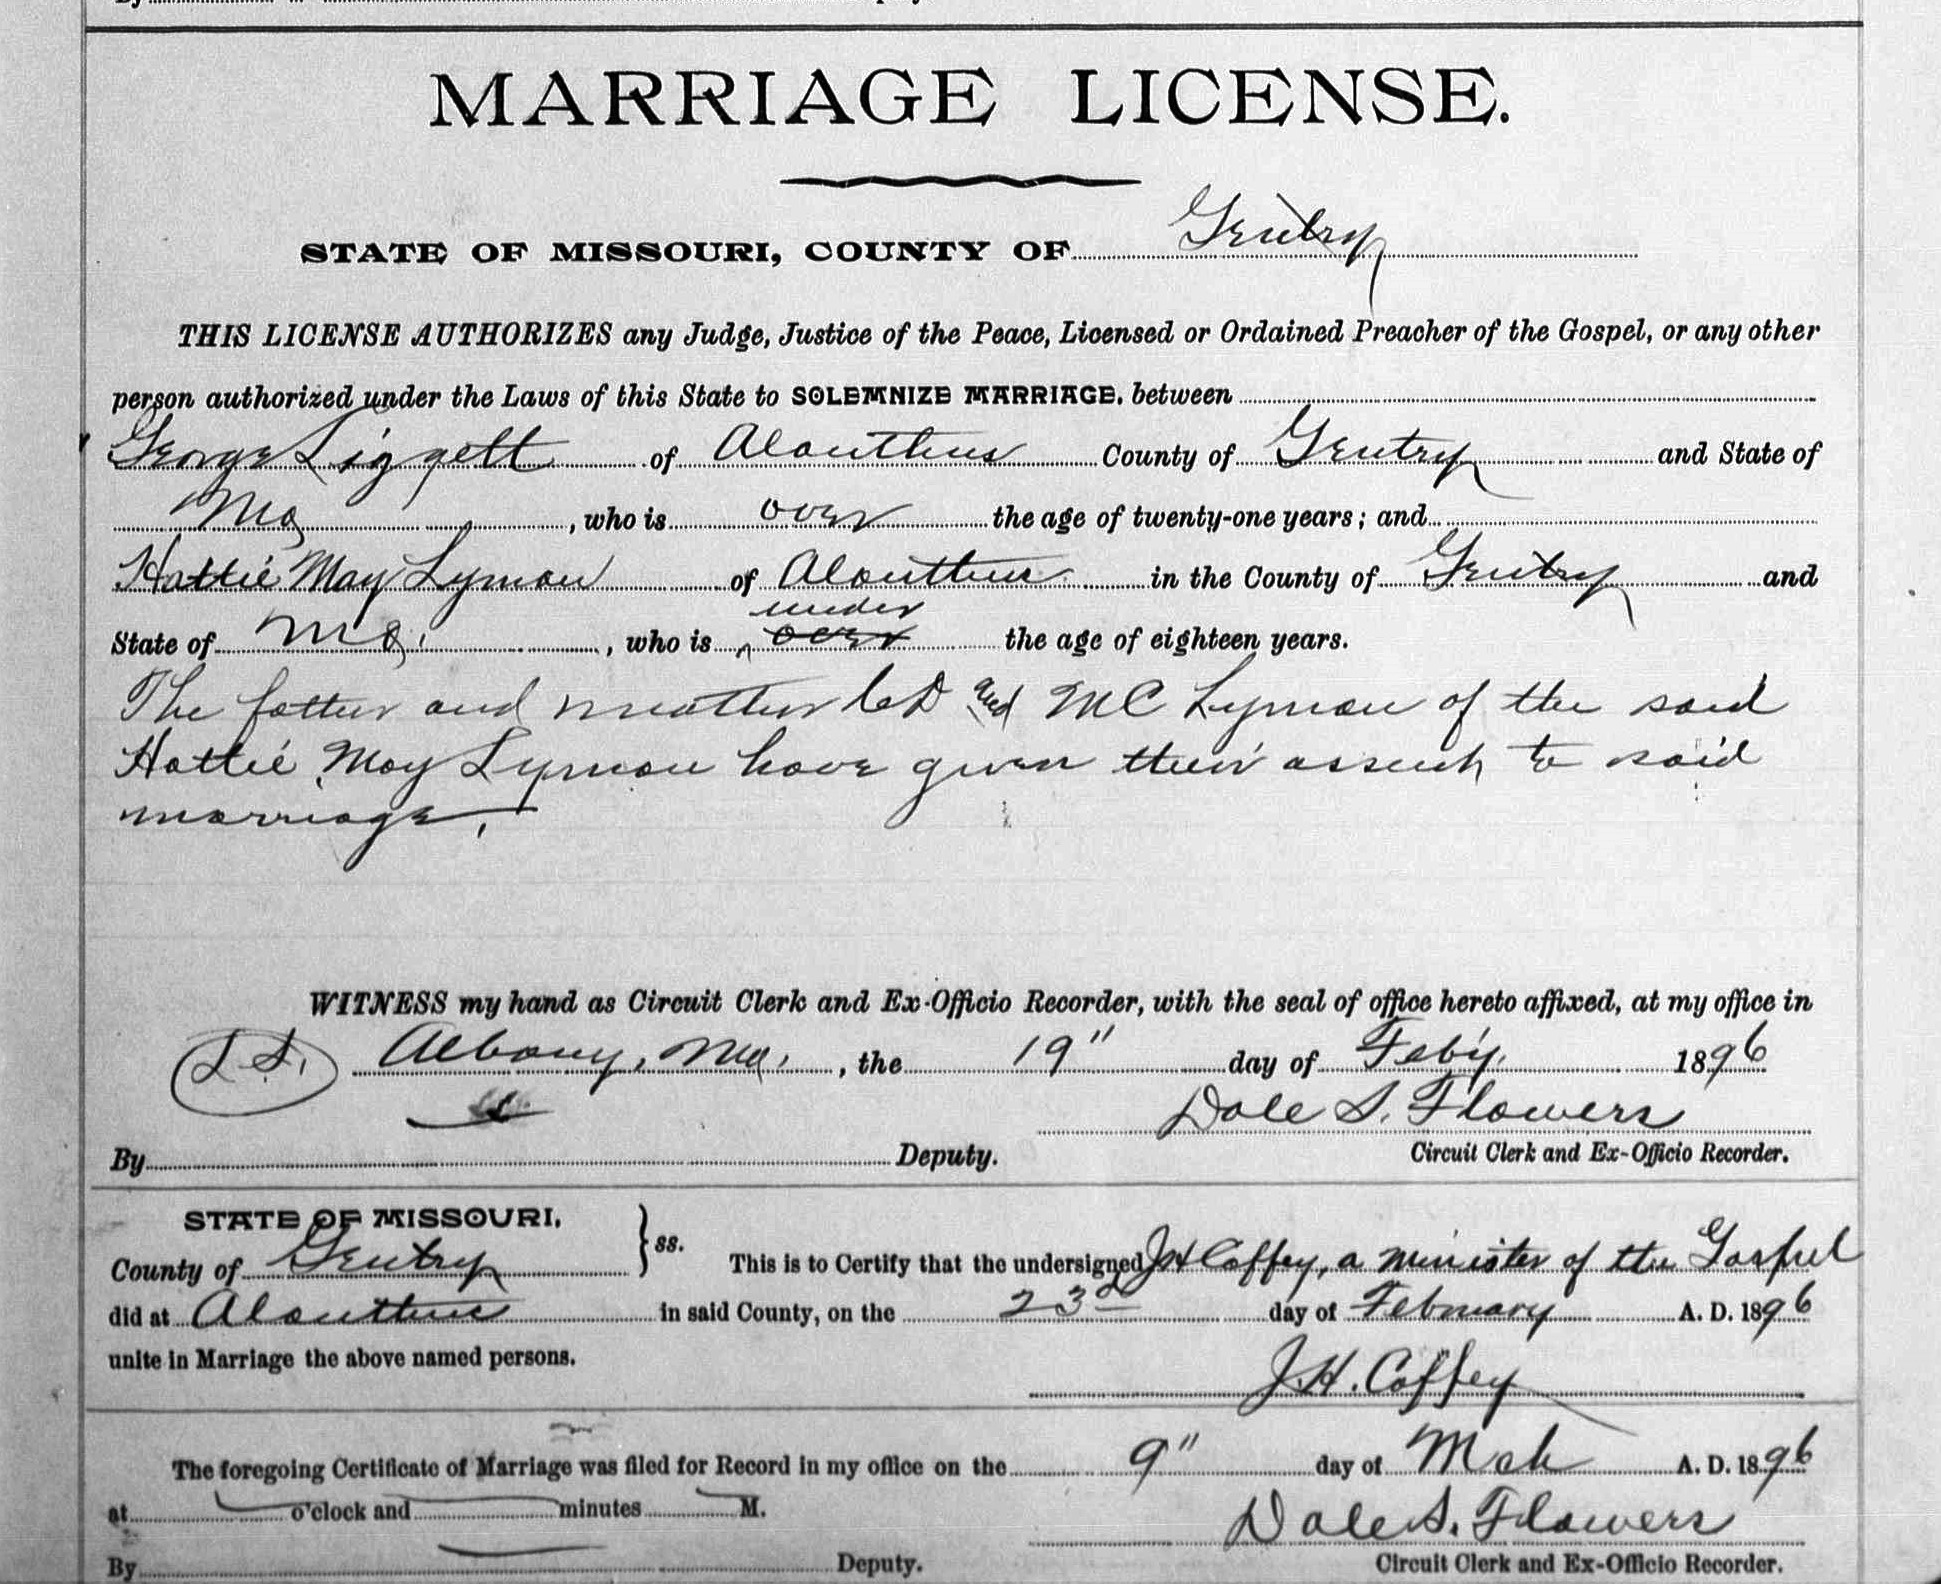 MARRIAGE LICENSE.
STATE OF MISSOURI, COUNTY OF Gentry
THIS LICENSE AUTHORIZES any Judge, Justice of the Peace, Licensed or Ordained Preacher of the Gospel, or any other
person authorized under the Laws of this State to SOLEMNIZE MARRIAGE, between
George Liggett of Alanthus County of Gentry and State of
Mo, who is over the age of twenty-one years; and
Hattie May Lyman of Alanthus in the County of Gentry and
under
State of Mo., who is over the age of eighteen years.
The father and mother C D and M C Lyman of the said
Hattie May Lyman have given their assent to said
marriage.
WITNESS my hand as Circuit Clerk and Ex-Officio Recorder, with the seal of office hereto affixed, at my office in
L S. Albany, Mo., the 19" day of Feb'y. 1896
Dale S. Flowers
By Deputy. Circuit Clerk and Ex-Officio Recorder.
STATE OF MISSOURI,
County of Gentry ss. This is to Certify that the undersigned J H Coffey, a minister of the Gospel
did at Alanthus in said County, on the 23d day of February A. D. 1896
unite in Marriage the above named persons.
J. H. Coffey
The foregoing Certificate of Marriage was filed for Record in my office on the 9" day of Mch A. D. 1896
at o'clock and minutes M.
Dale S. Flowers
By Deputy. Circuit Clerk and Ex-Officio Recorder.